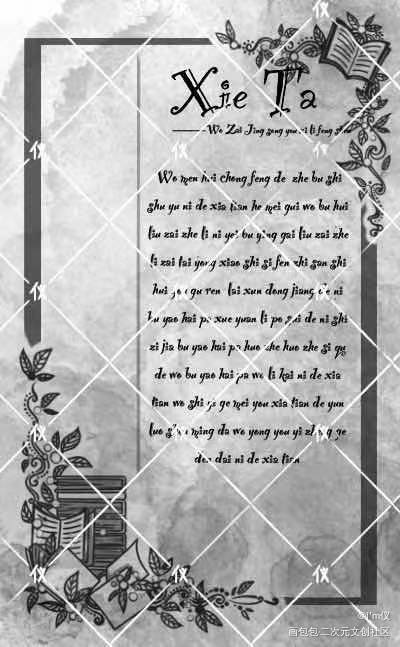 Xie Ta
Wo Zai Jing song you
Wo men hui chong feng de zhe bu shi
shu yu ni de xia tian he mei gui wo bu hui
liu zai zhe li ni ye bu ying gai liu zai zhe
li zai lai yong xiao shi si fen zhi san shi
hui you gu ren lai xun dong jiang de ni
bu yao hai pa xue yuan li po sui de ni shi
zi jia bu yao hai pa huo zhe huo zhe si qu
de wo bu yao hai pa wo li kai ni de xia
tian wo shi ge mei you xia tian de yun
luo ming da wo yong you yi ge
deng dai ni de xia tian
@I'm仪
画包包·二次元文创社区
仪
仪
仪
仪
仪
仪
仪
仪
仪
仪